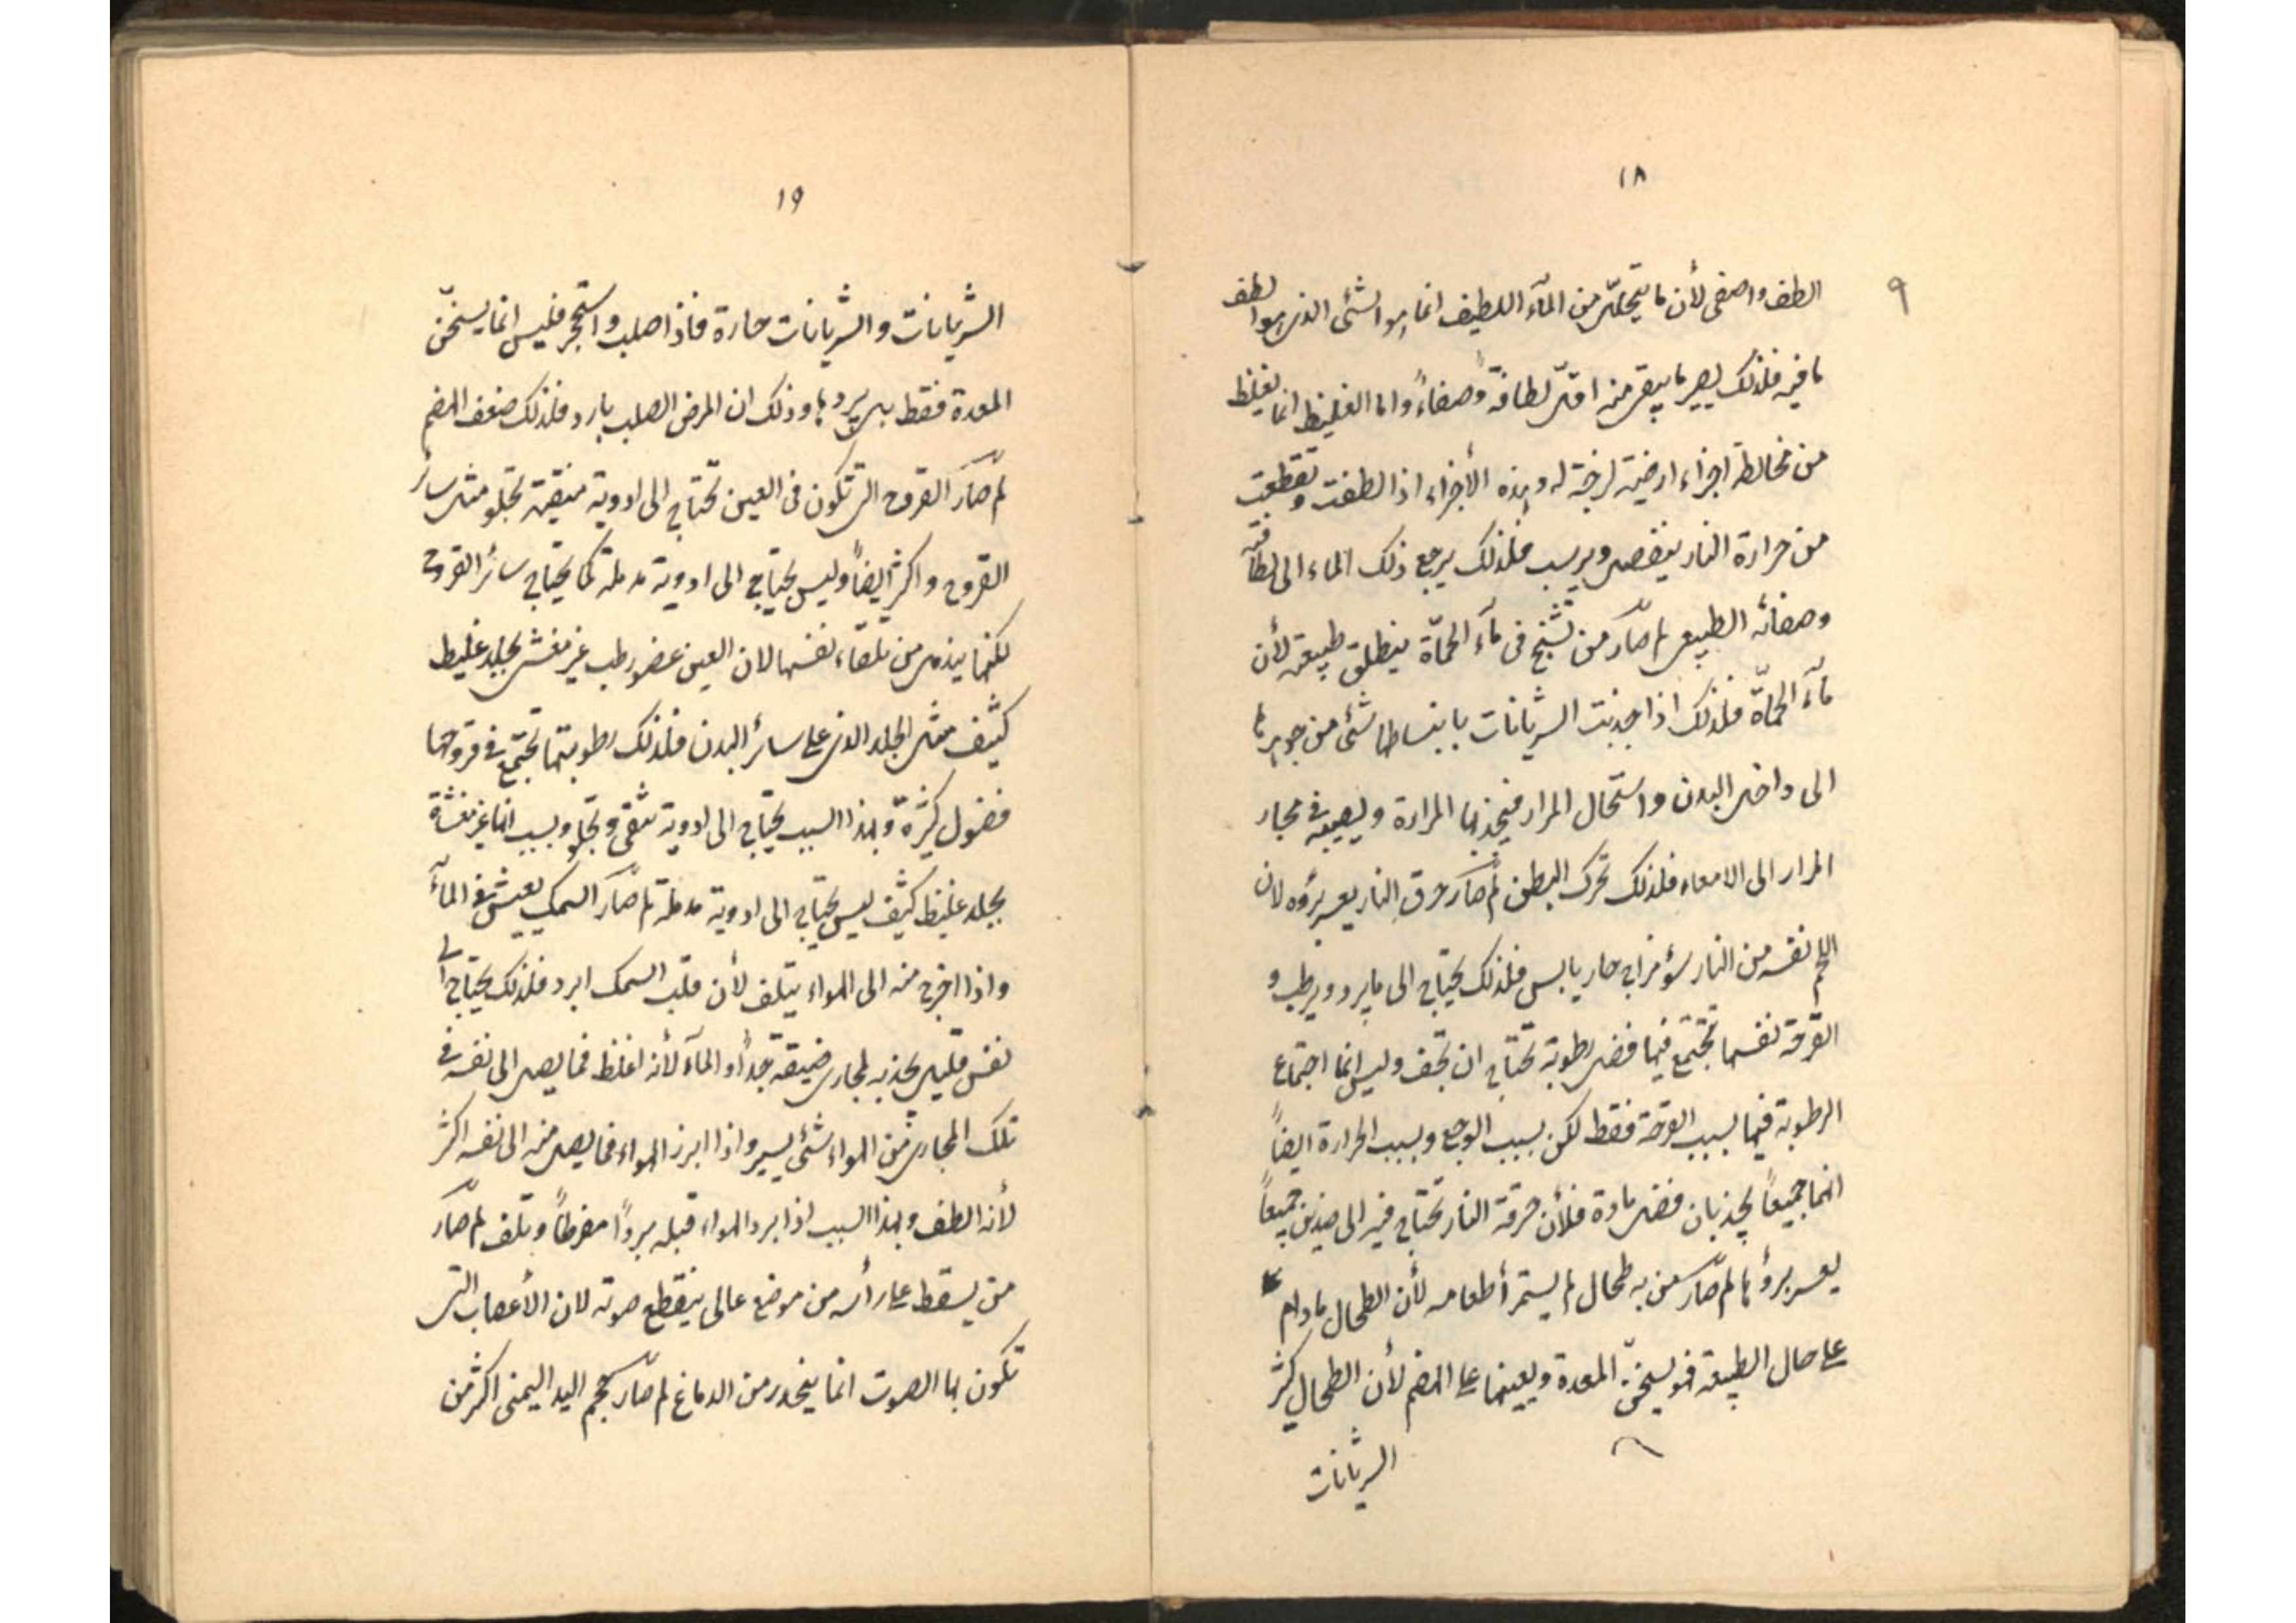 ١٨
٩
الطف واصفى لأن ما يتحلّل من المآء اللطيف انما هو الشئ الذى هو الطف
ما فيه فلذلك يصير ما يبقى منه اقلّ لطافةً وصفاءً واما الغليظ انما يغلظ
من مخالطة اجزاء ارضية لزجة له وهذه الأجزاء اذا لطفت وتقطعت
من حرارة النار ينفصل ويرسب فلذلك يرجع ذلك الماء الى لطافته
وصفائه الطبيعى لم صآر من تشنج فى مآء الحمّاة ينطلق طبيعته لأن
مآء الحمّاة فلذلك اذا جذبت الشريانات بانبساطها شئ من جوهرها
الى داخل البدن واستحال المرار فيجذبها المرارة ويصيبه فى مجار
المرار الى الامعاء فلذلك تحرك البطن لم صآر حرق النار يعسر برؤه لان
اللحم نفسه من النار سؤ مزاج حار يابس فلذلك يحتاج الى ما يبرد ويرطب و
القرحة نفسها تجتمع فيها فضل رطوبة تحتاج ان تجف وليس انما اجتماع
الرطوبة فيها بسبب القرحة فقط لكن بسبب الوجع وبسبب الحرارة ايضاً
انهما جميعاً يجذبان فضل مادة فلأن حرقة النار تحتاج فيه الى ضدين جميعاً
يعسر برؤها لم صآر من به طحال لم يستمرأ طعامه لأن الطحال ما دام
على حال الطبيعة فهو يسخّن المعدة ويعينها على الهضم لأن الطحال كثر
الشريانات
١٩
الشريانات والشريانات حارة فاذا صلب واستحجر فليس انما يسخّن
المعدة فقط بل يبردها وذلك ان المرض الصلب بارد فلذلك ضعف الهضم
لم صآر القروح التى تكون فى العين تحتاج الى ادوية منقية تجلو مثل سائر
القروح واكثر ايضاً وليس يحتاج الى ادوية مدملة كما يحتاج سائر القروح
لكنها يندمل من تلقاء نفسها لان العين عضو رطب غير مغشى بجلد غليظ
كثيف مثل الجلد الذى على سائر البدن فلذلك رطوبتها تجتمع فى قروحها
فضول كثيرة وبهذا السبب يحتاج الى ادوية تنقى وتجلو وبسبب انها غير مغشاة
بجلد غليظ كثيف ليس يحتاج الى ادوية مدملة لم صآر السمك يعيش فى المآء
واذا اخرج منه الى الهواء يتلف لأن قلب السمك ابرد فلذلك يحتاج الى
نفس قليل يجذبه لمجارى ضيقة جداً والمآء لأنه اغلظ فما يصل الى نفسه فى
تلك المجارى من الهواء شئ يسير واذا ابرز الهواء فما يصل منه الى نفسه اكثر
لأنه الطف وبهذا السبب اذا برد الهواء قبله برداً مفرطاً وتلف لم صآر
من يسقط على رأسه من موضع عالى ينقطع صوته لان الأعصاب التى
تكون بها الصوت انما ينحدر من الدماغ لم صآر حجم اليد اليمنى اكثر من